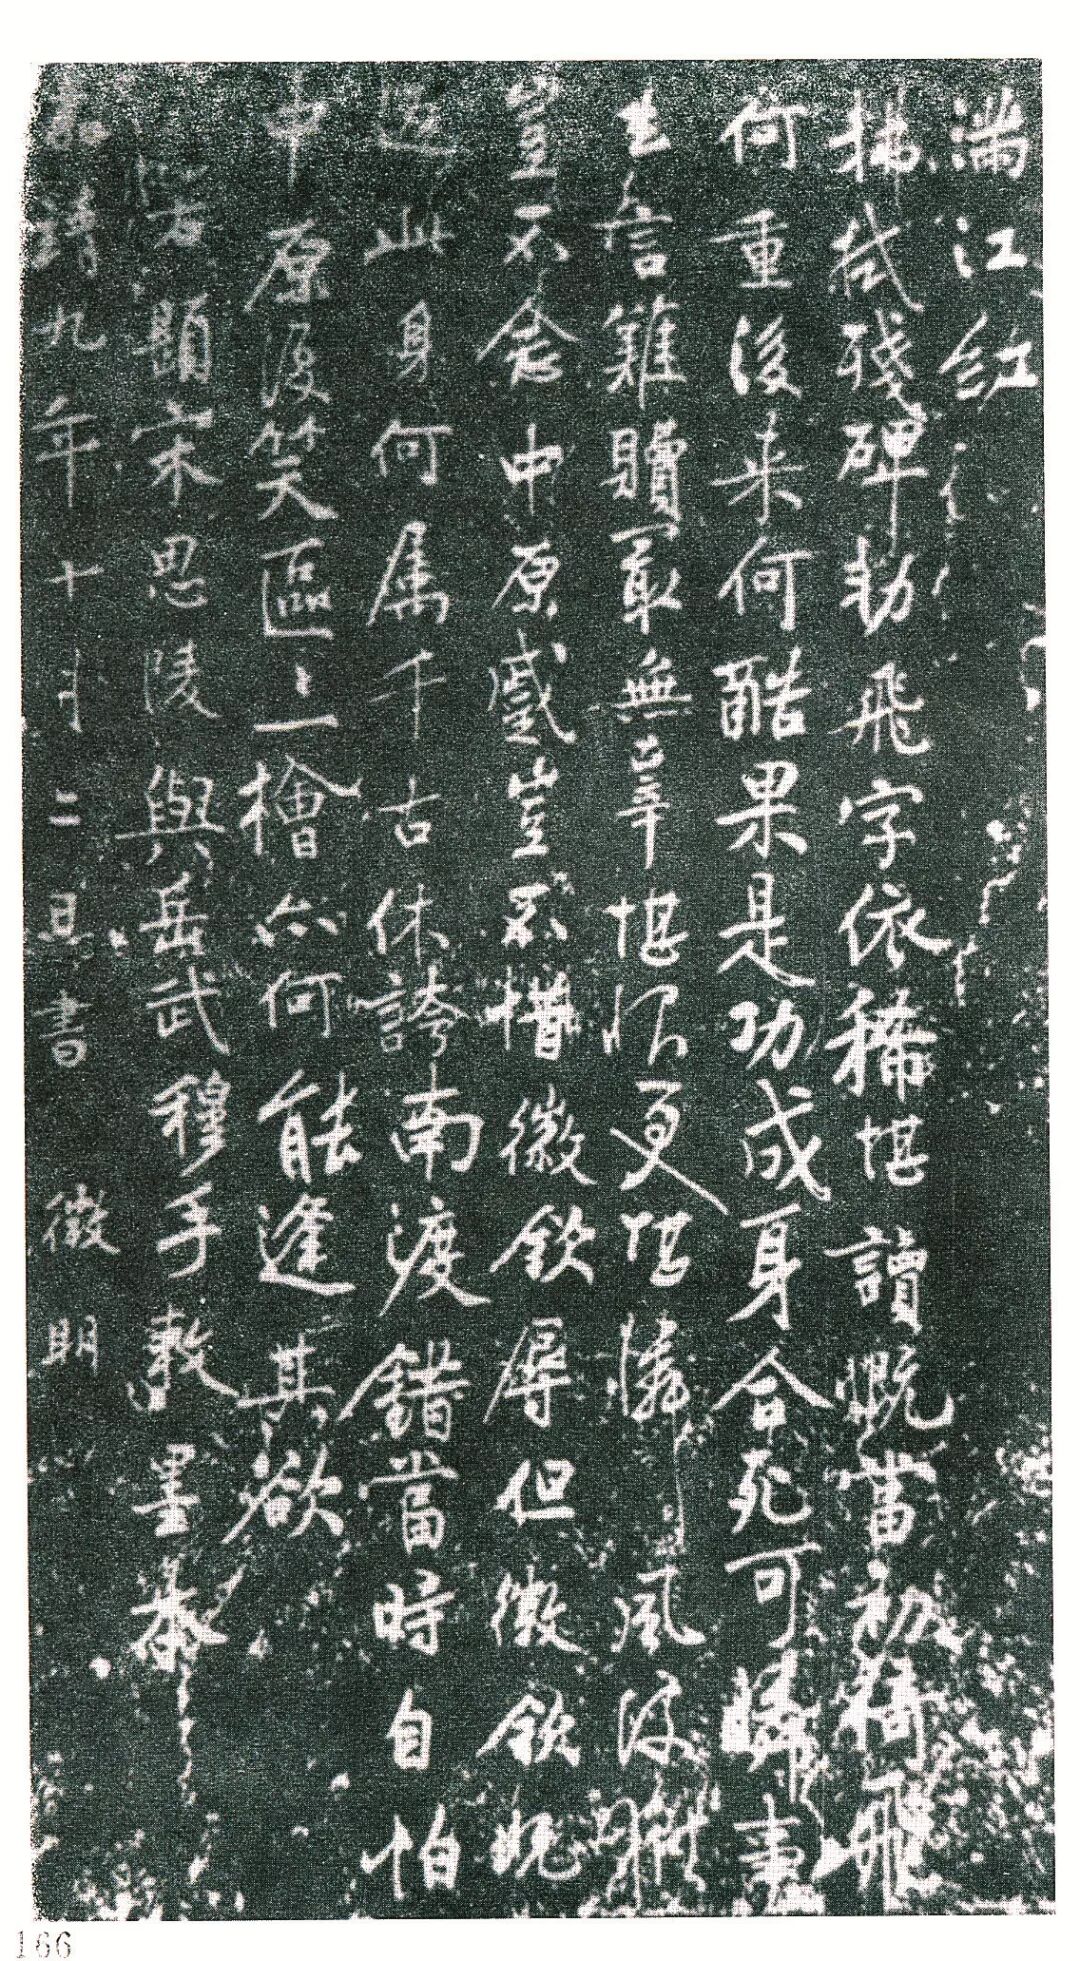 滿江紅
拂拭殘碑勑飛字依稀堪讀慨當初倚飛
何重後来何酷果是功成身合死可憐事
去言難贖最無辜堪恨更堪憐風波獄
豈不念中原蹙豈不惜徽欽辱但徽欽既
返此身何属千古休誇南渡錯當時自怕
中原復笑區〻一檜亦何能逢其欲
右題宋思陵與岳武穆手敕墨本
嘉靖九年十月二日書 徵明
166